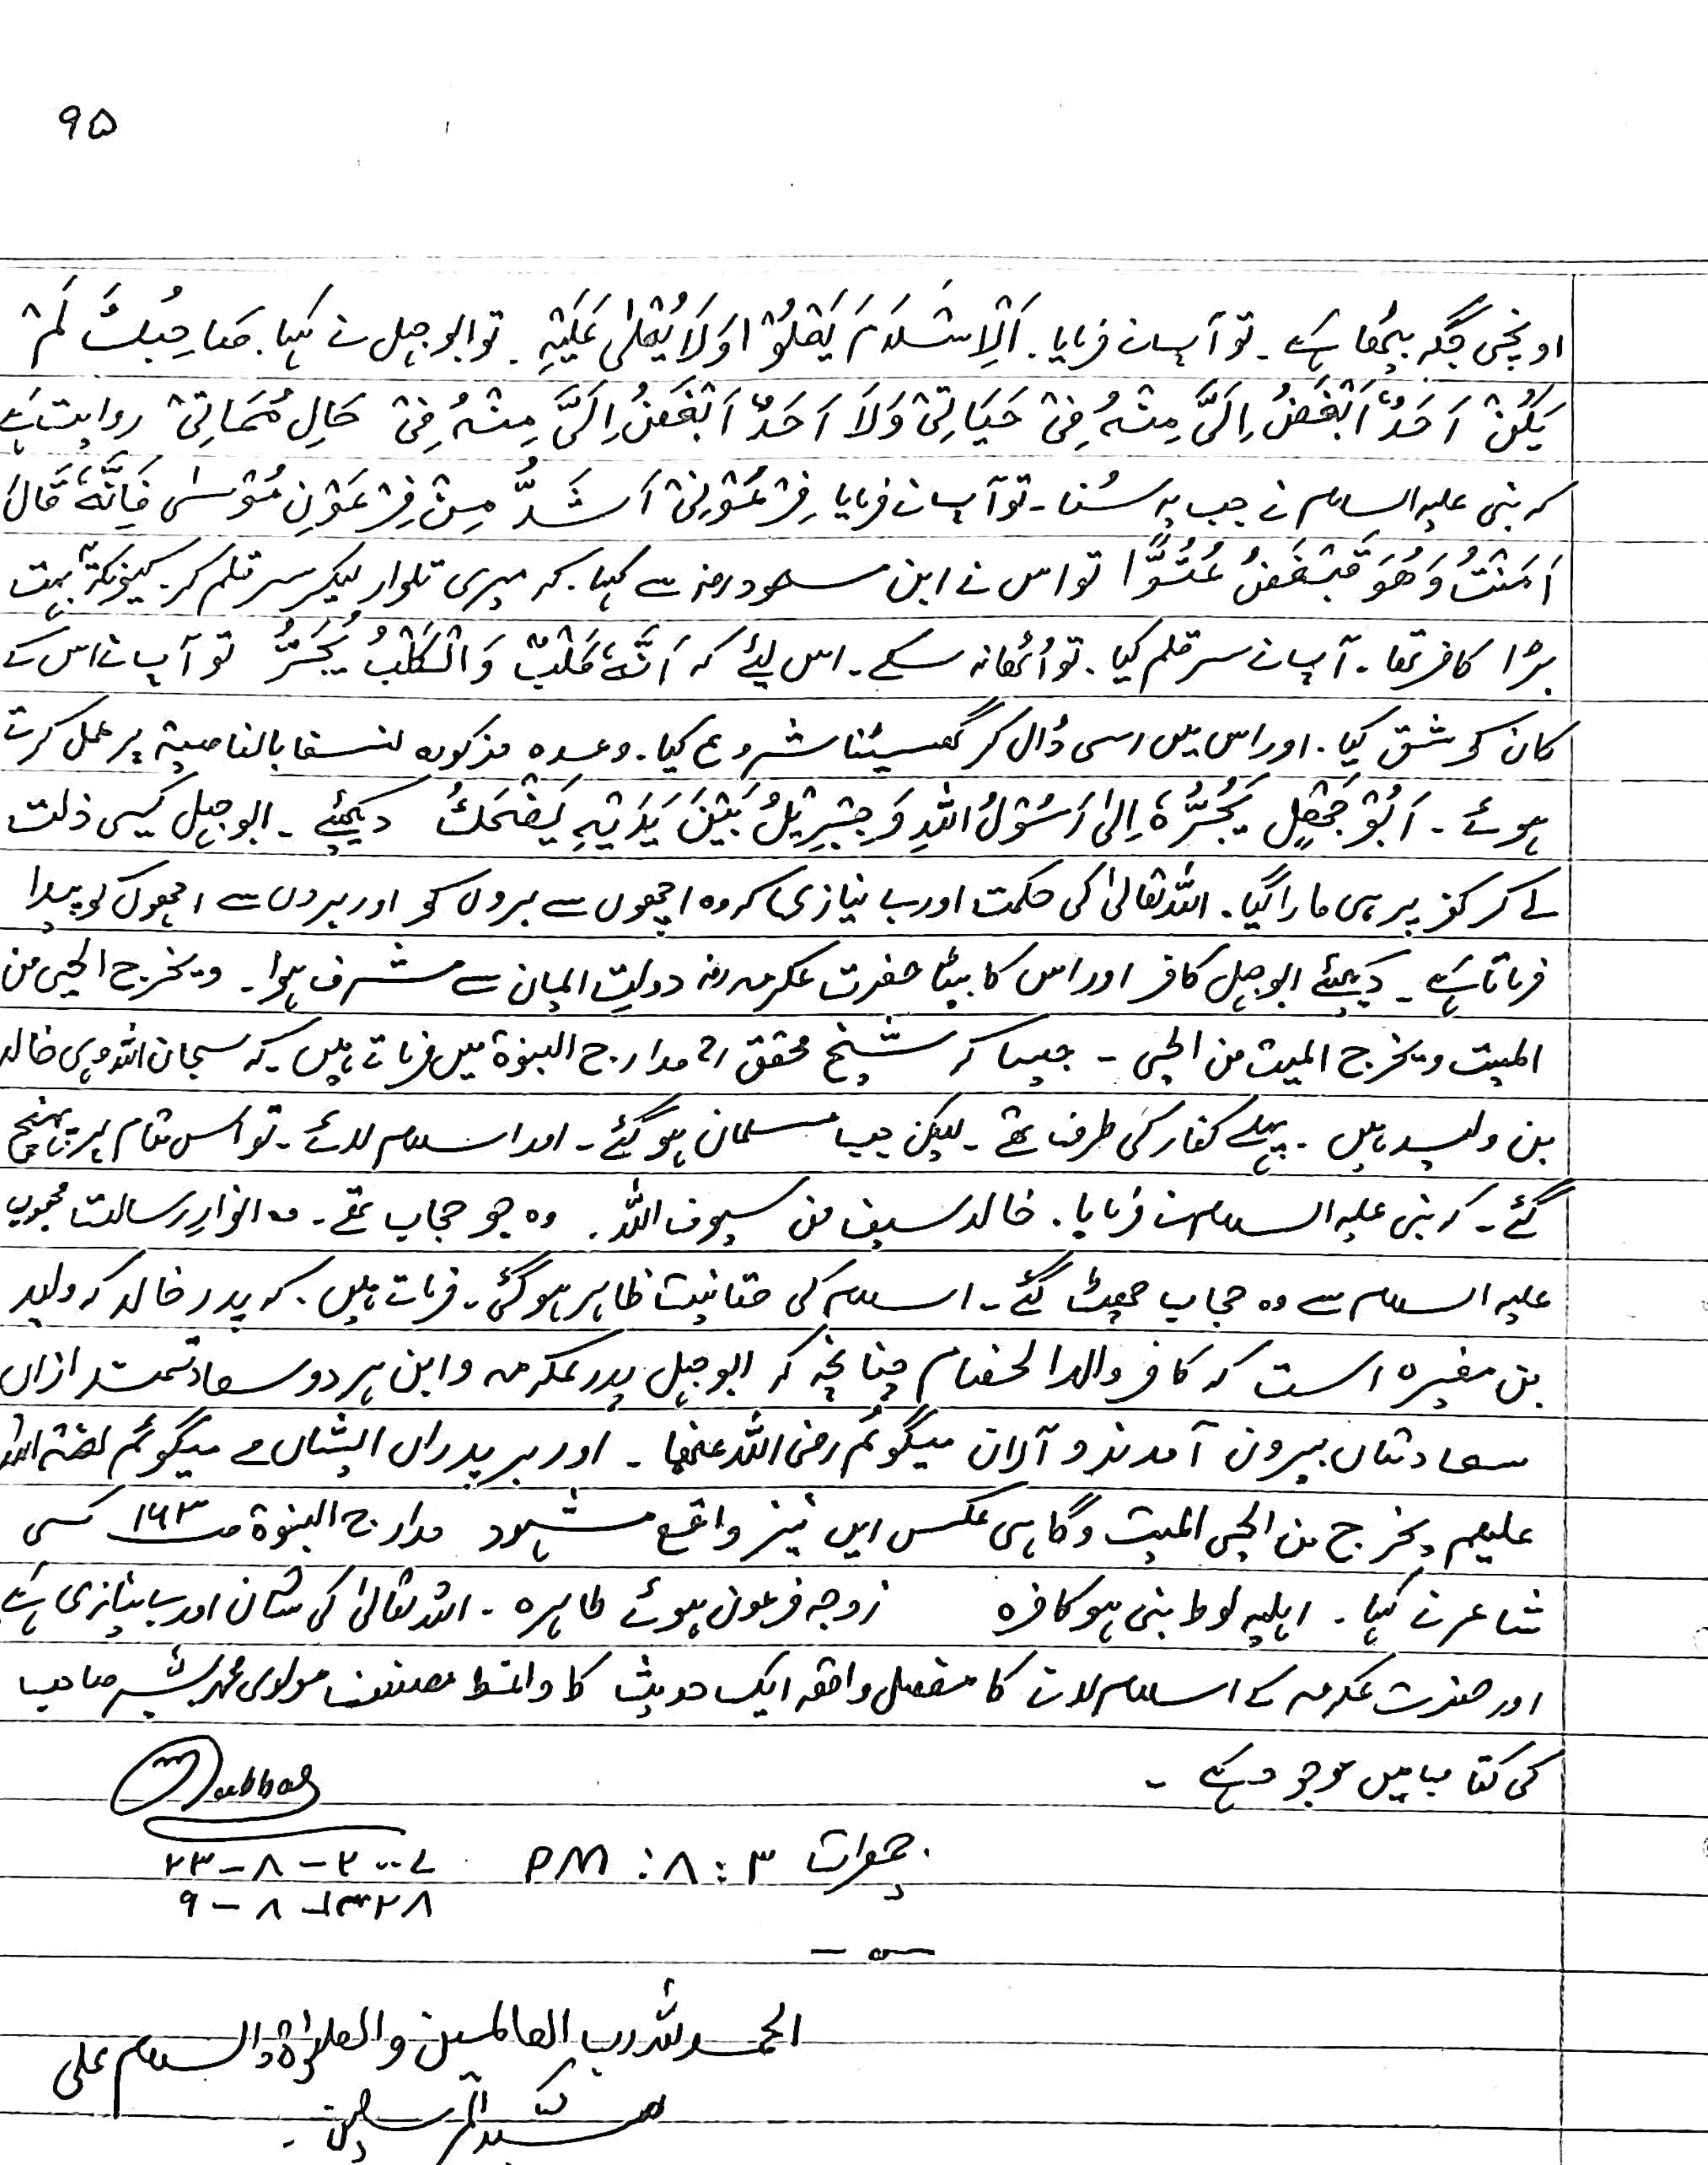 ۹۵
اونچی جگہ بیٹھا ہے۔ تو آپ نے فرمایا۔ اَلْاِسْلَامُ یَعْلُوْا وَلَا یُعْلٰی عَلَیْہِ۔ تو ابوجہل نے کہا۔ صَاحِبُكَ لَمْ
یَکُنْ اَحَدٌ اَبْغَضُ اِلَیَّ مِنْہُ فِیْ حَیَاتِیْ وَلَا اَحَدٌ اَبْغَضُ اِلَیَّ مِنْہُ فِیْ حَالِ مُمَاتِیْ روایت ہے
کہ نبی علیہ السلام نے جب یہ سُنا۔ تو آپ نے فرمایا فِرْعَوْنِیْ اَشَدُّ مِنْ فِرْعَوْنِ مُوْسٰی فَاِنَّہٗ قَالَ
اٰمَنْتُ وَھُوَ عُتُوًّا تو اس نے ابن مسعود رضہ سے کہا۔ کہ میری تلوار لیکر سر قلم کر۔ کیونکہ بہت
بڑا کافر تھا۔ آپ نے سر قلم کیا۔ تو اُٹھا نہ سکے۔ اس لیئے کہ اَنَّہٗ کَلْبٌ وَالْکَلْبُ یُجَرُّ تو آپ نے اس کے
کان کو شق کیا۔ اور اس میں رسی ڈال کر گھسیٹنا شروع کیا۔ وعدہ مذکورہ لنسفا بالناصیۃ پر عمل کرتے
ہوئے۔ اَبُوْ جَھْلٍ یَجُرُّہٗ اِلٰی رَسُوْلُ اللّٰہِ وَجِبْرِیْلُ بَیْنَ یَدَیْہِ یَضْحَكُ دیکھئے۔ ابوجہل کیسی ذلت
لے کر کفر پر ہی مارا گیا۔ اللہ تعالیٰ کی حکمت اور بے نیازی کہ وہ اچھوں سے بروں کو اور بروں سے اچھوں کو پیدا
فرماتا ہے۔ دیکھئے ابوجہل کافر اور اس کا بیٹا حضرت عکرمہ رضہ دولتِ ایمان سے مشرف ہوا۔ ویخرج الحی من
المیت ویخرج المیت من الحی۔ جیسا کہ شیخ محقق رح مدارج النبوۃ میں فرماتے ہیں۔ کہ سبحان اللہ وہی خالد
بن ولید ہیں۔ پہلے کفار کی طرف تھے۔ لیکن جب مسلمان ہو گئے۔ اور اسلام لائے۔ تو اس مقام پر پہنچ
گئے۔ کہ نبی علیہ السلام نے فرمایا۔ خالد سیف من سیوف اللہ۔ وہ جو حجاب تھے۔ وہ انوارِ رسالت محبوب
علیہ السلام سے وہ حجاب چھٹ گئے۔ اسلام کی حقانیت ظاہر ہو گئی۔ فرماتے ہیں۔ کہ پدر خالد کہ ولید
بن مغیرہ است کہ کافر والد الخصام چنانچہ کہ ابوجہل پدر عکرمہ و این ہر دو سعادتمند ازاں
بیرون آمدند و آراں میگوئم رضی اللہ عنہما۔ اور بر پدراں ایشاں مے میگوئم لعنۃ اللہ
علیہم یخرج من الحی المیت و گاہی عکس ایں نیز واقع مشہود مدارج النبوۃ صـ ۱۶۳ کسی
شاعر نے کہا۔ اہلیہ لوط نبی ہو کافرہ زوجہ فرعون ہوئے طاہرہ۔ اللہ تعالیٰ کی شان اور بے نیازی ہے
اور حضرت عکرمہ کے اسلام لانے کا مفصل واقعہ ایک حدیث کا واعظ مصنف مولوی محمد بشیر صاحب
کی کتاب میں موجود ہے۔
جمعرات ۳ : ۸ : PM ۲۳-۸-۲۰۰۷
۹-۸-۱۴۲۸
الحمد للہ رب العالمین والصلوٰۃ والسلام علی
سید المرسلین۔